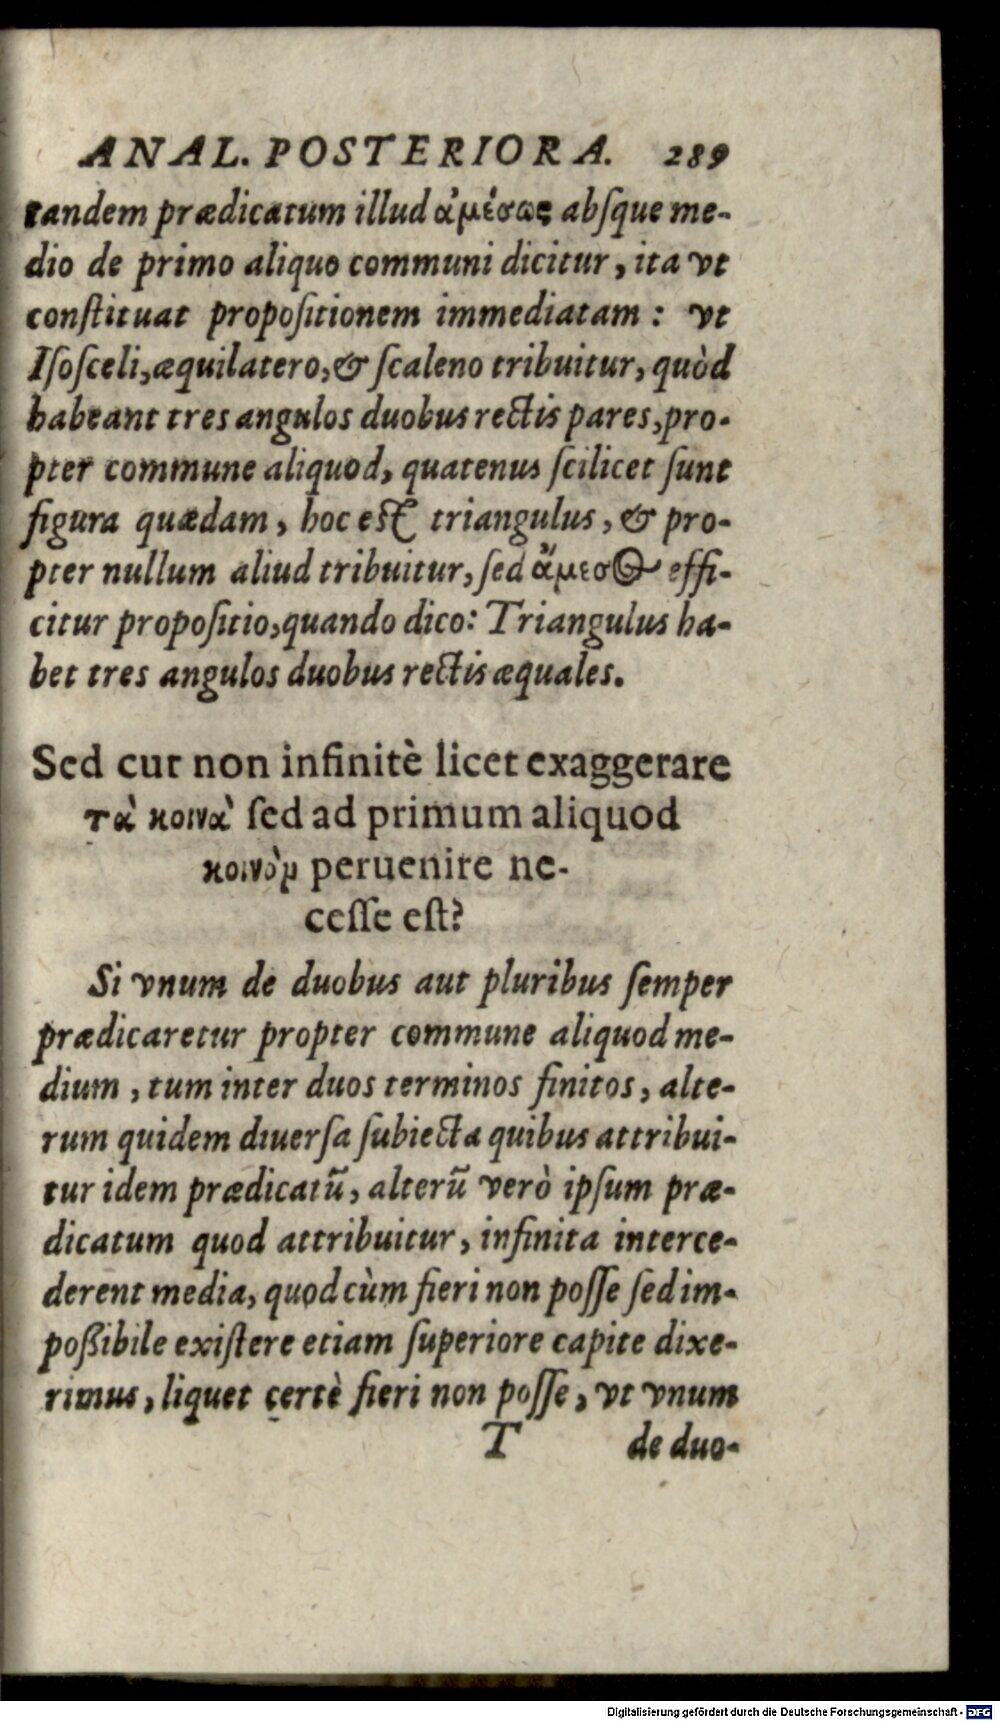 ANAL. POSTERIORA. 289
tandem prædicatum illud ἀμέσως abſque me-
dio de primo aliquo communi dicitur, ita vt
conſtituat propoſitionem immediatam: vt
Iſoſceli, æquilatero, & ſcaleno tribuitur, quòd
habeant tres angulos duobus rectis pares, pro-
pter commune aliquod, quatenus ſcilicet ſunt
figura quædam, hoc eſt triangulus, & pro-
pter nullum aliud tribuitur, ſed ἄμεσος effi-
citur propoſitio, quando dico: Triangulus ha-
bet tres angulos duobus rectis æquales.
Sed cur non infinitè licet exaggerare
τὰ κοινὰ ſed ad primum aliquod
κοινὸν peruenire ne-
ceſſe eſt?
Si vnum de duobus aut pluribus ſemper
prædicaretur propter commune aliquod me-
dium, tum inter duos terminos finitos, alte-
rum quidem diuerſa ſubiecta quibus attribui-
tur idem prædicatū, alterū verò ipſum præ-
dicatum quod attribuitur, infinita interce-
derent media, quod cùm fieri non poſſe ſed im-
poßibile exiſtere etiam ſuperiore capite dixe-
rimus, liquet certè fieri non poſſe, vt vnum
T de duo-
Digitalisierung gefördert durch die Deutsche Forschungsgemeinschaft - DFG